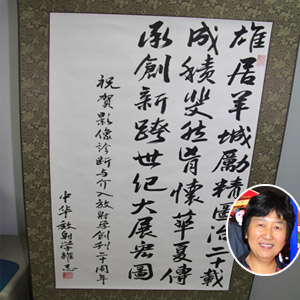 雄居羊城勵精圖治二十載
成績斐然胸懷華夏傳
承創新跨世纪大展宏圖
祝賀影像诊断与介入放射学創刊二十周年
中华放射学雜志